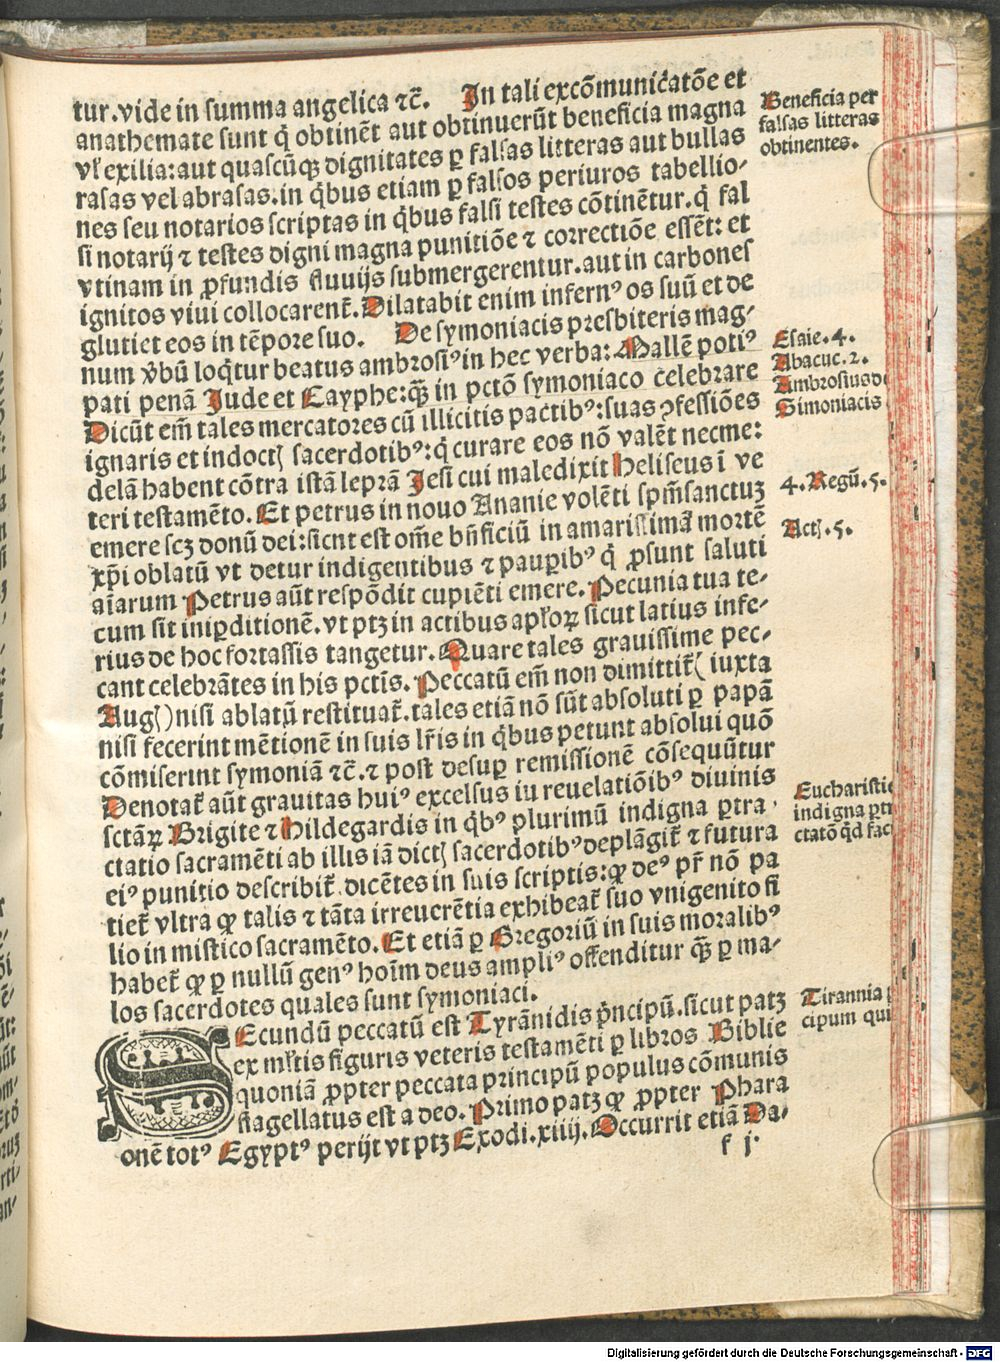 tur. vide in summa angelica ⁊c̄. In tali excōmunicatōe et
anathemate sunt q̇ obtinēt aut obtinuerūt beneficia magna
vl' exilia: aut quascūqꝫ dignitates ꝑ falsas litteras aut bullas
rasas vel abrasas. in q̇bus etiam ꝑ falsos periuros tabellio-
nes seu notarios scriptas in q̇bus falsi testes cōtinētur. q̇ fal
si notarij ⁊ testes digni magna punitiōe ⁊ correctiōe essēt: et
vtinam in ꝓfundis fluuijs submergerentur. aut in carbones
ignitos viui collocarent̄. Dilatabit enim infernꝰ os suū et de
glutiet eos in tēpore suo. De symoniacis presbiteris mag-
num v̇bū loq̇tur beatus ambrosiꝰ in hec verba: Mallē potiꝰ
pati penā Jude et Cayphe: qꝫ̄ in pctō symoniaco celebrare
Dicūt em̄ tales mercatores cū illicitis pactibꝰ: suas ꝯfessiōes
ignaris et indoctꝭ sacerdotibꝰ: q̇ curare eos nō valēt necme:
delā habent cōtra istā leprā Jesi cui maledixit Heliseus ī ve
teri testamēto. Et petrus in nouo Ananie volēti spm̄sanctuꝫ
emere scꝫ donū dei: sicnt est om̄e bn̄ficiū in amarissima morte
xp̄i oblatū vt detur indigentibus ⁊ pauꝑibꝰ q̇ ꝓsunt saluti
aīarum Petrus aūt respōdit cupiēti emere. Pecunia tua te-
cum sit iniꝑditionē. vt ptꝫ in actibus apl'oꝝ sicut latius infe-
rius de hoc fortassis tangetur. Quare tales grauissime pec-
cant celebrātes in his pctīs. Peccatū em̄ non dimittit̄ (iuxta
Augꝭ) nisi ablatū restituat̄. tales etiā nō sūt absoluti ꝑ papā
nisi fecerint mētionē in suis lr̄is in q̇bus petunt absolui quō
cōmiserint symoniā ⁊c̄. ⁊ post desuꝑ remissionē cōsequūtur
Denotat̄ aūt grauitas huiꝰ excelsus iu reuelatiōibꝰ diuinis
sctāꝝ Brigite ⁊ Hildegardis in q̇bꝰ plurimū indigna ꝑtra-
ctatio sacramēti ab illis iā dictꝭ sacerdotibꝰ deplāgit̄ ⁊ futura
eiꝰ punitio describit̄. dicētes in suis scriptis: ꝙ deꝰ pr̄ nō pa
tiet̄ vltra ꝙ talis ⁊ tāta irreuerētia exhibeat̄ suo vnigenito fi
lio in mistico sacramēto. Et etiā ꝑ Gregoriū in suis moralibꝰ
habet̄ ꝙ ꝑ nullū genꝰ hoīm deus ampliꝰ offenditur qꝫ̄ ꝑ ma-
los sacerdotes quales sunt symoniaci.
SEcundū peccatū est Tyrānidis p̄ncipū. sicut patꝫ
ex ml'tis figuris veteris testamēti ꝑ libros Biblie
quoniā ꝓpter peccata principū populus cōmunis
flagellatus est a deo. Primo patꝫ ꝙ ꝓpter Phara
onē totꝰ Egyptꝰ perijt vt ptꝫ Exodi. xiiij. Occurrit etiā Da-
f j
Beneficia per
falsas litteras
obtinentes.
Esaie. 4.
Abacuc. 2.
Ambrosius de
Simoniacis
4. Regū. 5.
Actꝭ. 5.
Eucharistie
indigna ꝑtr
ctatō q̇d fac
Tirannia p
cipum qui
Digitalisierung gefördert durch die Deutsche Forschungsgemeinschaft - DFG